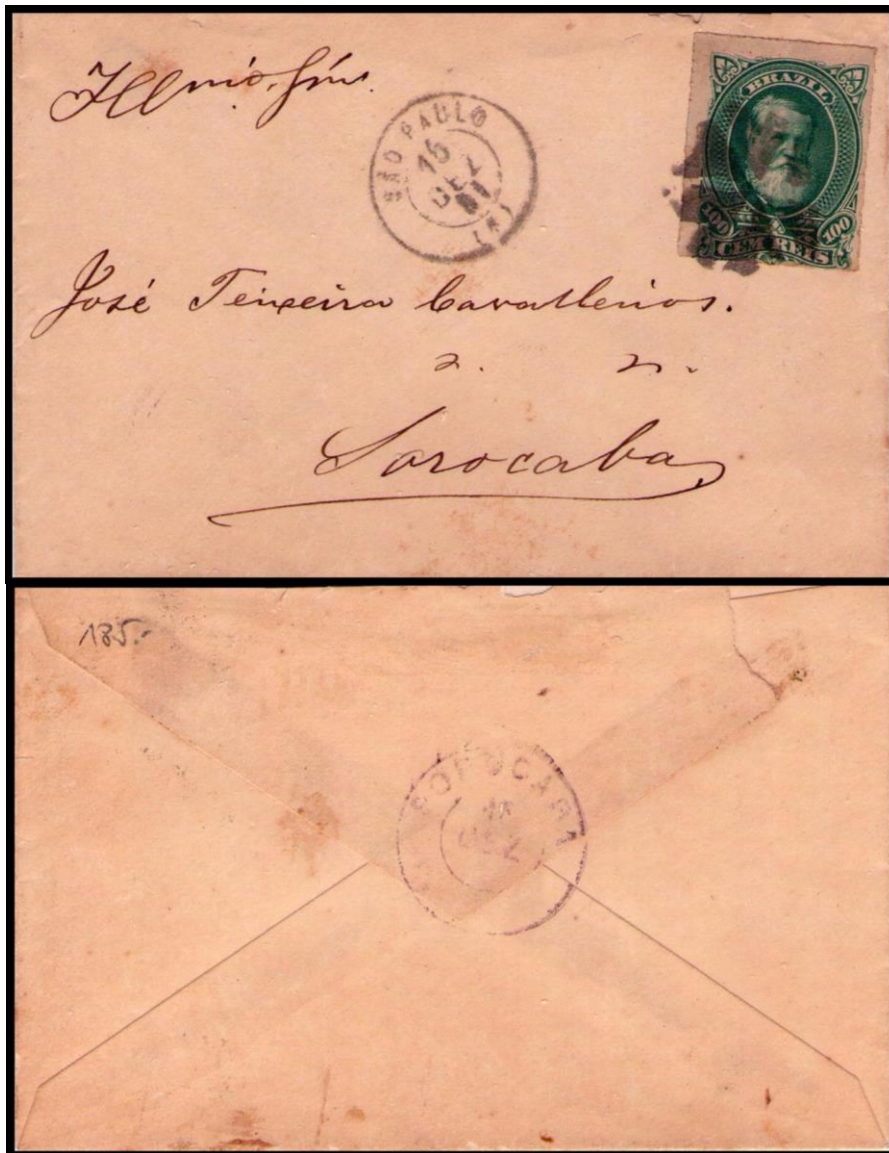 Illmo. Snr.
SÃO PAULO
15
DEZ
81
(1)
BRAZIL
100 100
CEM REIS
José Teixeira Cavalheiros.
Sorocaba
185.-
SOROCABA
DEZ